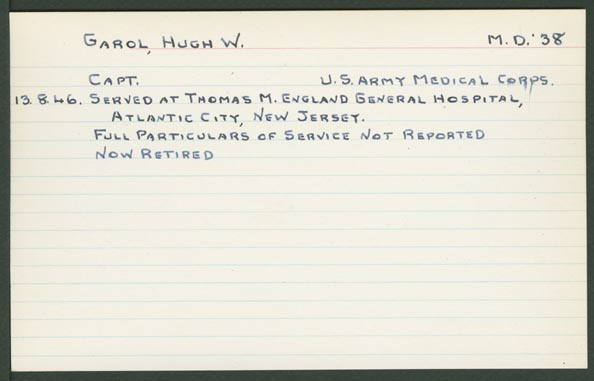 GAROL, HUGH W. M.D.'38
CAPT. U.S. ARMY MEDICAL CORPS.
13.8.46. SERVED AT THOMAS M. ENGLAND GENERAL HOSPITAL,
ATLANTIC CITY, NEW JERSEY.
FULL PARTICULARS OF SERVICE NOT REPORTED
NOW RETIRED